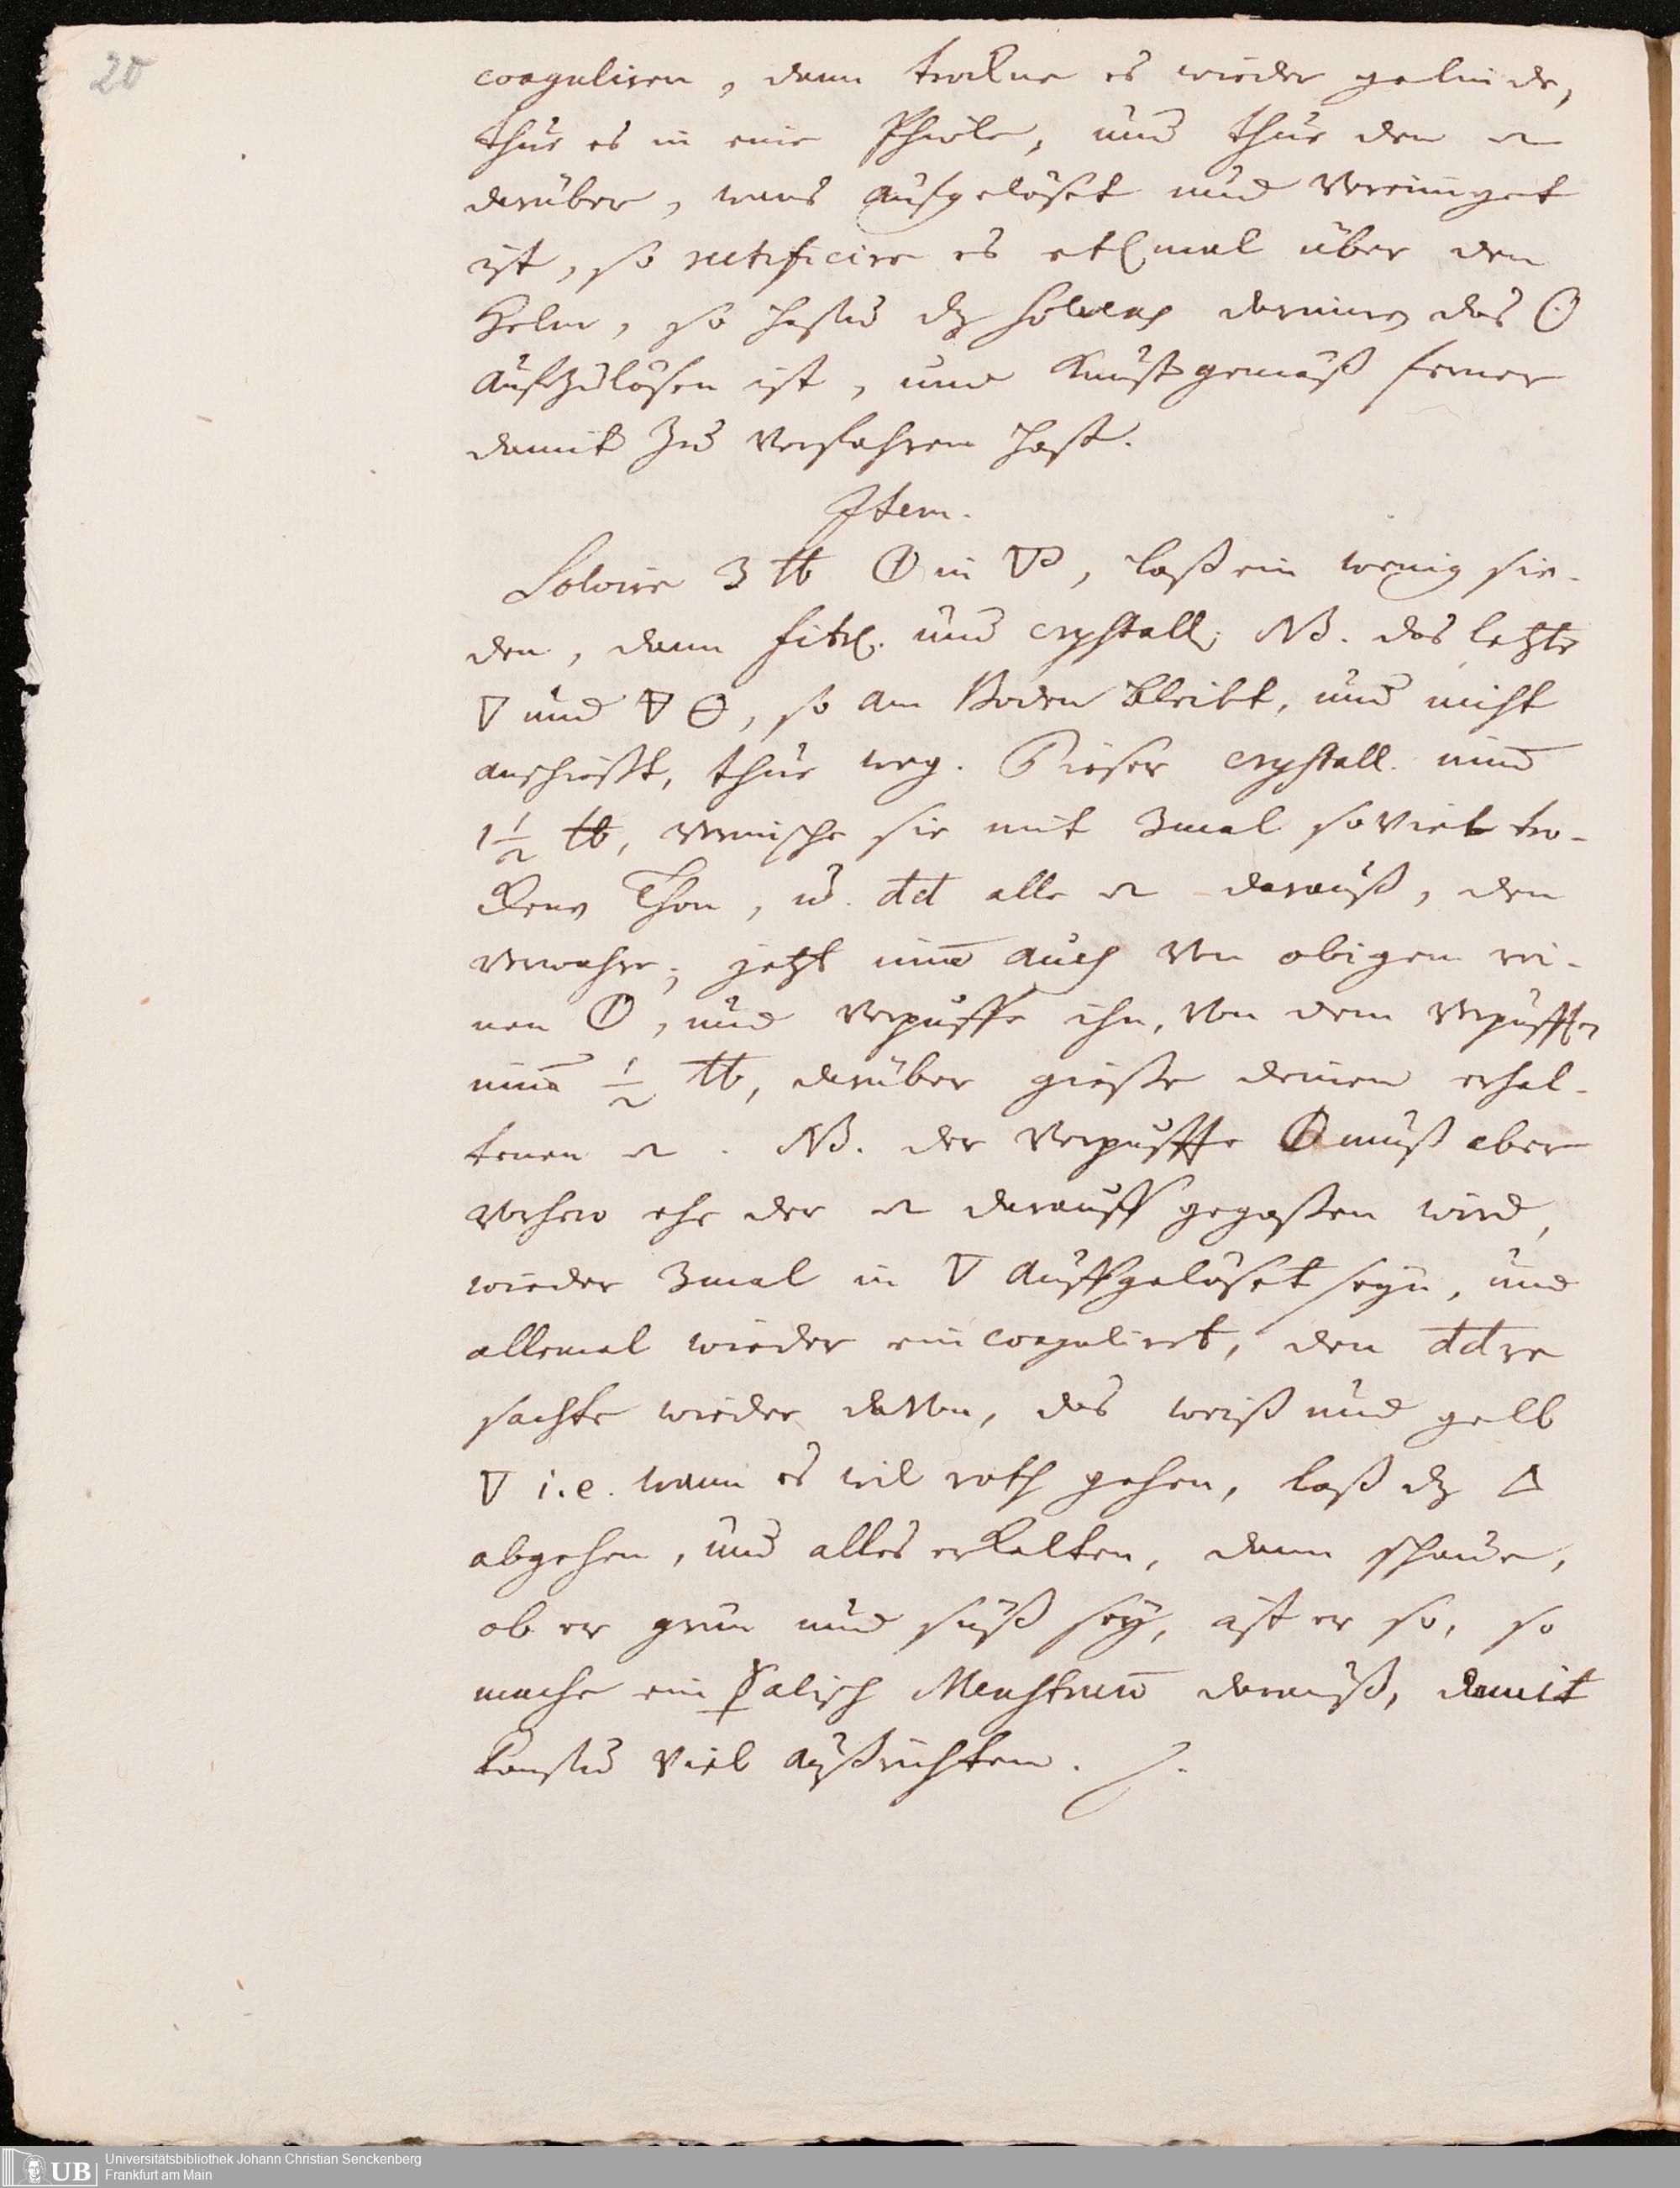 20
coaguliren, dann trockne es wieder gelinde,
thue es in eine Phiole, und thue den ꝛ
darüber, wans aufgelöset und Vereinget
ist, so rectificire es etl mal über den
Helm, so hastu dz solvens darinen das ☉
aufzulösen ist, und Kunstgemäß ferner
damit zu verfahren hast.
Item.
Solvire 3 ℔ 🜕 in 🜄, laß ein wenig sie-
den, dann filtr. und crystall. NB. das letzte
🜄 und 🜃 🜔, so am Boden bleibt, und nicht
anschießt, thue weg. Dieser crystall. nim̄
1½ ℔, vermische sie mit 3mal soviel tro-
ckenen Thon, u. dd alle ꝛ darauß, den
verwahre; jetzt nim̄ auch Von obigem rei-
nen 🜕, und Verpuffe ihn, Von dem Verpufften
nim̄ ½ ℔, darüber gieße deinen erhal-
tenen ꝛ. NB. der Verpuffte 🜕 muß aber
vorhero ehe der ꝛ darauff gegoßen wird,
wieder 3mal in 🜄 auffgelöset seyn, und
allemal wieder ein coagulirt, den ddre
sachte wieder davon, das weiß und gelb
🜄 i.e. wann es wil roth gehen, laß dz 🜂
abgehen, und alles erkalten, dann schaue,
ob er grün und süß sey, ist er so, so
mache ein Salisch Menstruum darauß, damit
kanstu viel außrichten.
Universitätsbibliothek Johann Christian Senckenberg
UB Frankfurt am Main